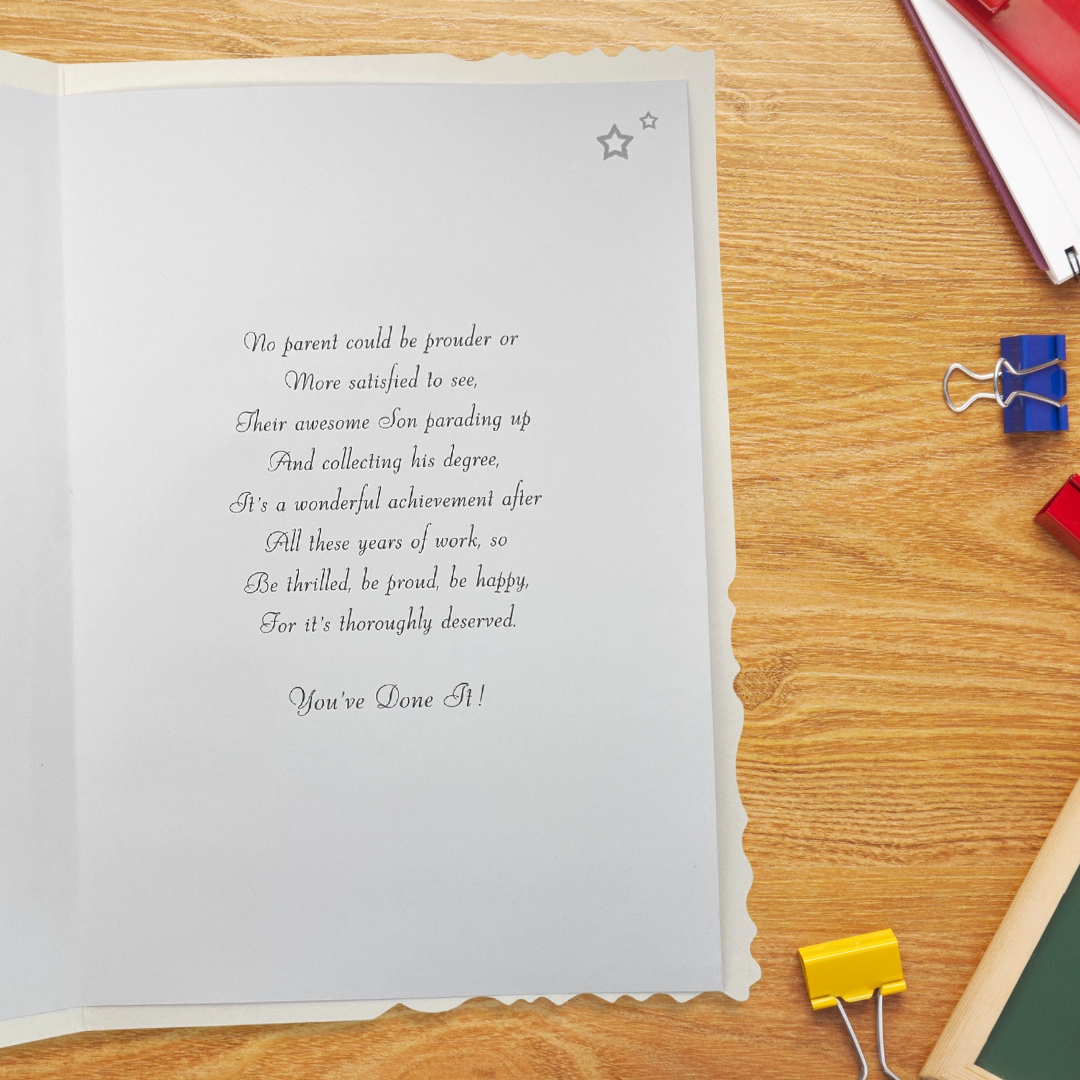 No parent could be prouder or
More satisfied to see,
Their awesome Son parading up
And collecting his degree,
It's a wonderful achievement after
All these years of work, so
Be thrilled, be proud, be happy,
For it's thoroughly deserved.
You've Done It!